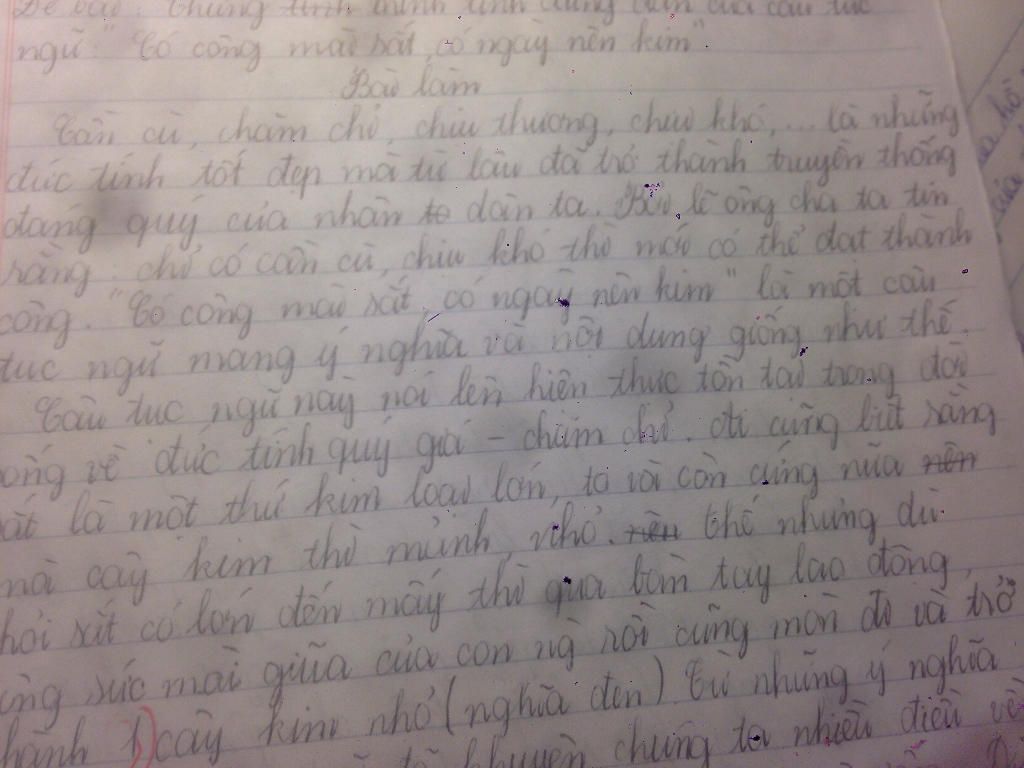 Đề bài: Chứng minh tính đúng đắn của câu tục
ngữ: "Có công mài sắt, có ngày nên kim".
Bài làm
Cần cù, chăm chỉ, chịu thương, chịu khó,... là những
đức tính tốt đẹp mà từ lâu đã trở thành truyền thống
đáng quý của nhân dân ta. Bởi lẽ ông cha ta tin
rằng: chỉ có cần cù, chịu khó thì mới có thể đạt thành
công. "Có công mài sắt, có ngày nên kim" là một câu
tục ngữ mang ý nghĩa và nội dung giống như thế.
Câu tục ngữ này nói lên hiện thực tồn tại trong đời
về đức tính quý giá - chăm chỉ. Ai cũng biết rằng
sắt là một thứ kim loại lớn, to và còn cứng nữa nên
mà cây kim thì mảnh, nhỏ. nên thế nhưng dù
thỏi sắt có lớn đến mấy thì qua bàn tay lao động,
sức mài giũa của con ng rồi cũng mòn đi và trở
thành 1 cây kim nhỏ (nghĩa đen). Từ những ý nghĩa
khuyên chúng ta nhiều điều về